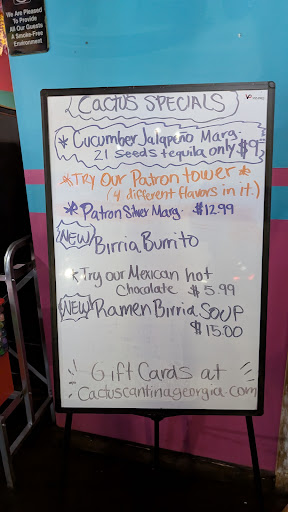 We Are Pleased
To Provide
All Our Guests
A Smoke-Free
Environment
CACTUS SPECIALS
* Cucumber Jalapeño Marg.
21 Seeds tequila only $9
*TRY Our Patron tower *
(4 different flavors in it.)
* Patron Silver Marg. $12.99
NEW Birria Burrito
*Try our Mexican hot
chocolate $5.99
NEW Ramen Birria SOUP
$15.00
Gift Cards at
Cactuscantinageorgia.com